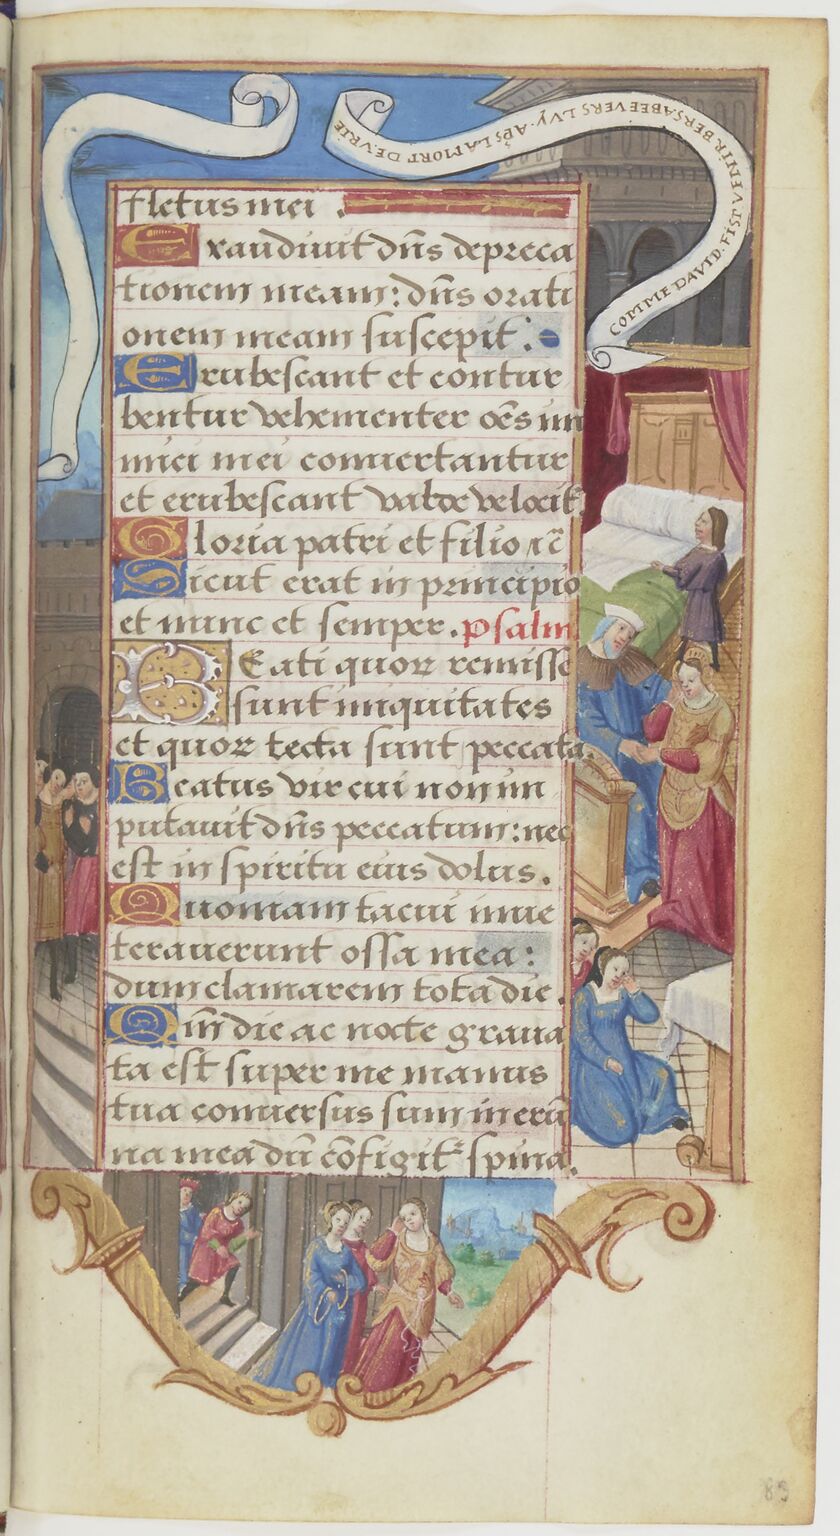 COMME DAVID. FIST VENIR BERSABEE VERS LVY. APS LA MORT DE VRIE
fletus mei.
Exaudivit dñs depreca
tionem meam: dñs orati
onem meam suscepit.
Erubescant et contur
bentur vehementer oẽs ini
mici mei convertantur
et erubescant valde velocit᷑.
Gloria patri et filio ⁊c̃
Sicut erat in principio
et nunc et semper. psalm.
BEati quoꝝ remisse
sunt iniquitates
et quoꝝ tecta sunt peccata.
Beatus vir cui non im
putavit dñs peccatum: nec
est in spiritu eius dolus.
Quoniam tacui inve
teraverunt ossa mea:
dum clamarem tota die.
Qm̃ die ac nocte grava
ta est super me manus
tua conversus sum in erũ
na mea dũ cõfigit᷑ spina.
89